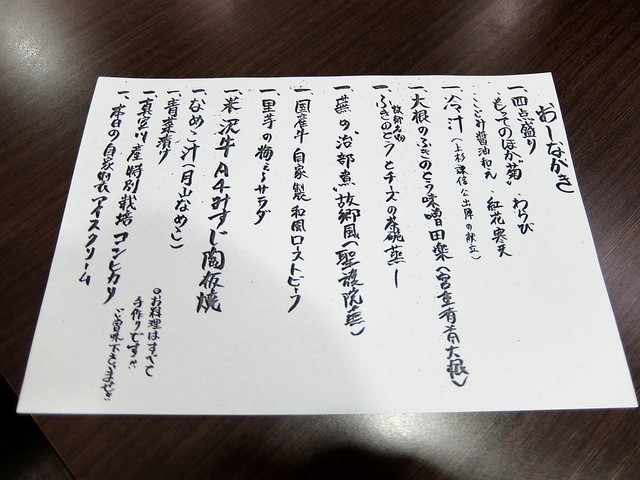 おしながき
一、四点盛り
・もってのほか菊 ・わらび
・こごみ醤油和え ・紅花寒天
一、冷汁(上杉謙信公出陣の献立)
一、大根のふきのとう味噌田楽(宮重青首大根)
一、故郷名物 ふきのとうとチーズの茶碗蒸し
一、蕪の治部煮、故郷風(聖護院蕪)
一、国産牛自家製和風ローストビーフ
一、里芋の梅とろサラダ
一、米沢牛A4みすじ陶板焼
一、なめこ汁(月山なめこ)
一、青菜漬り
一、真室川産特別栽培コシヒカリ
一、本日の自家製アイスクリーム
◎お料理はすべて
手作りです!!
ご賞味下さいませ!!